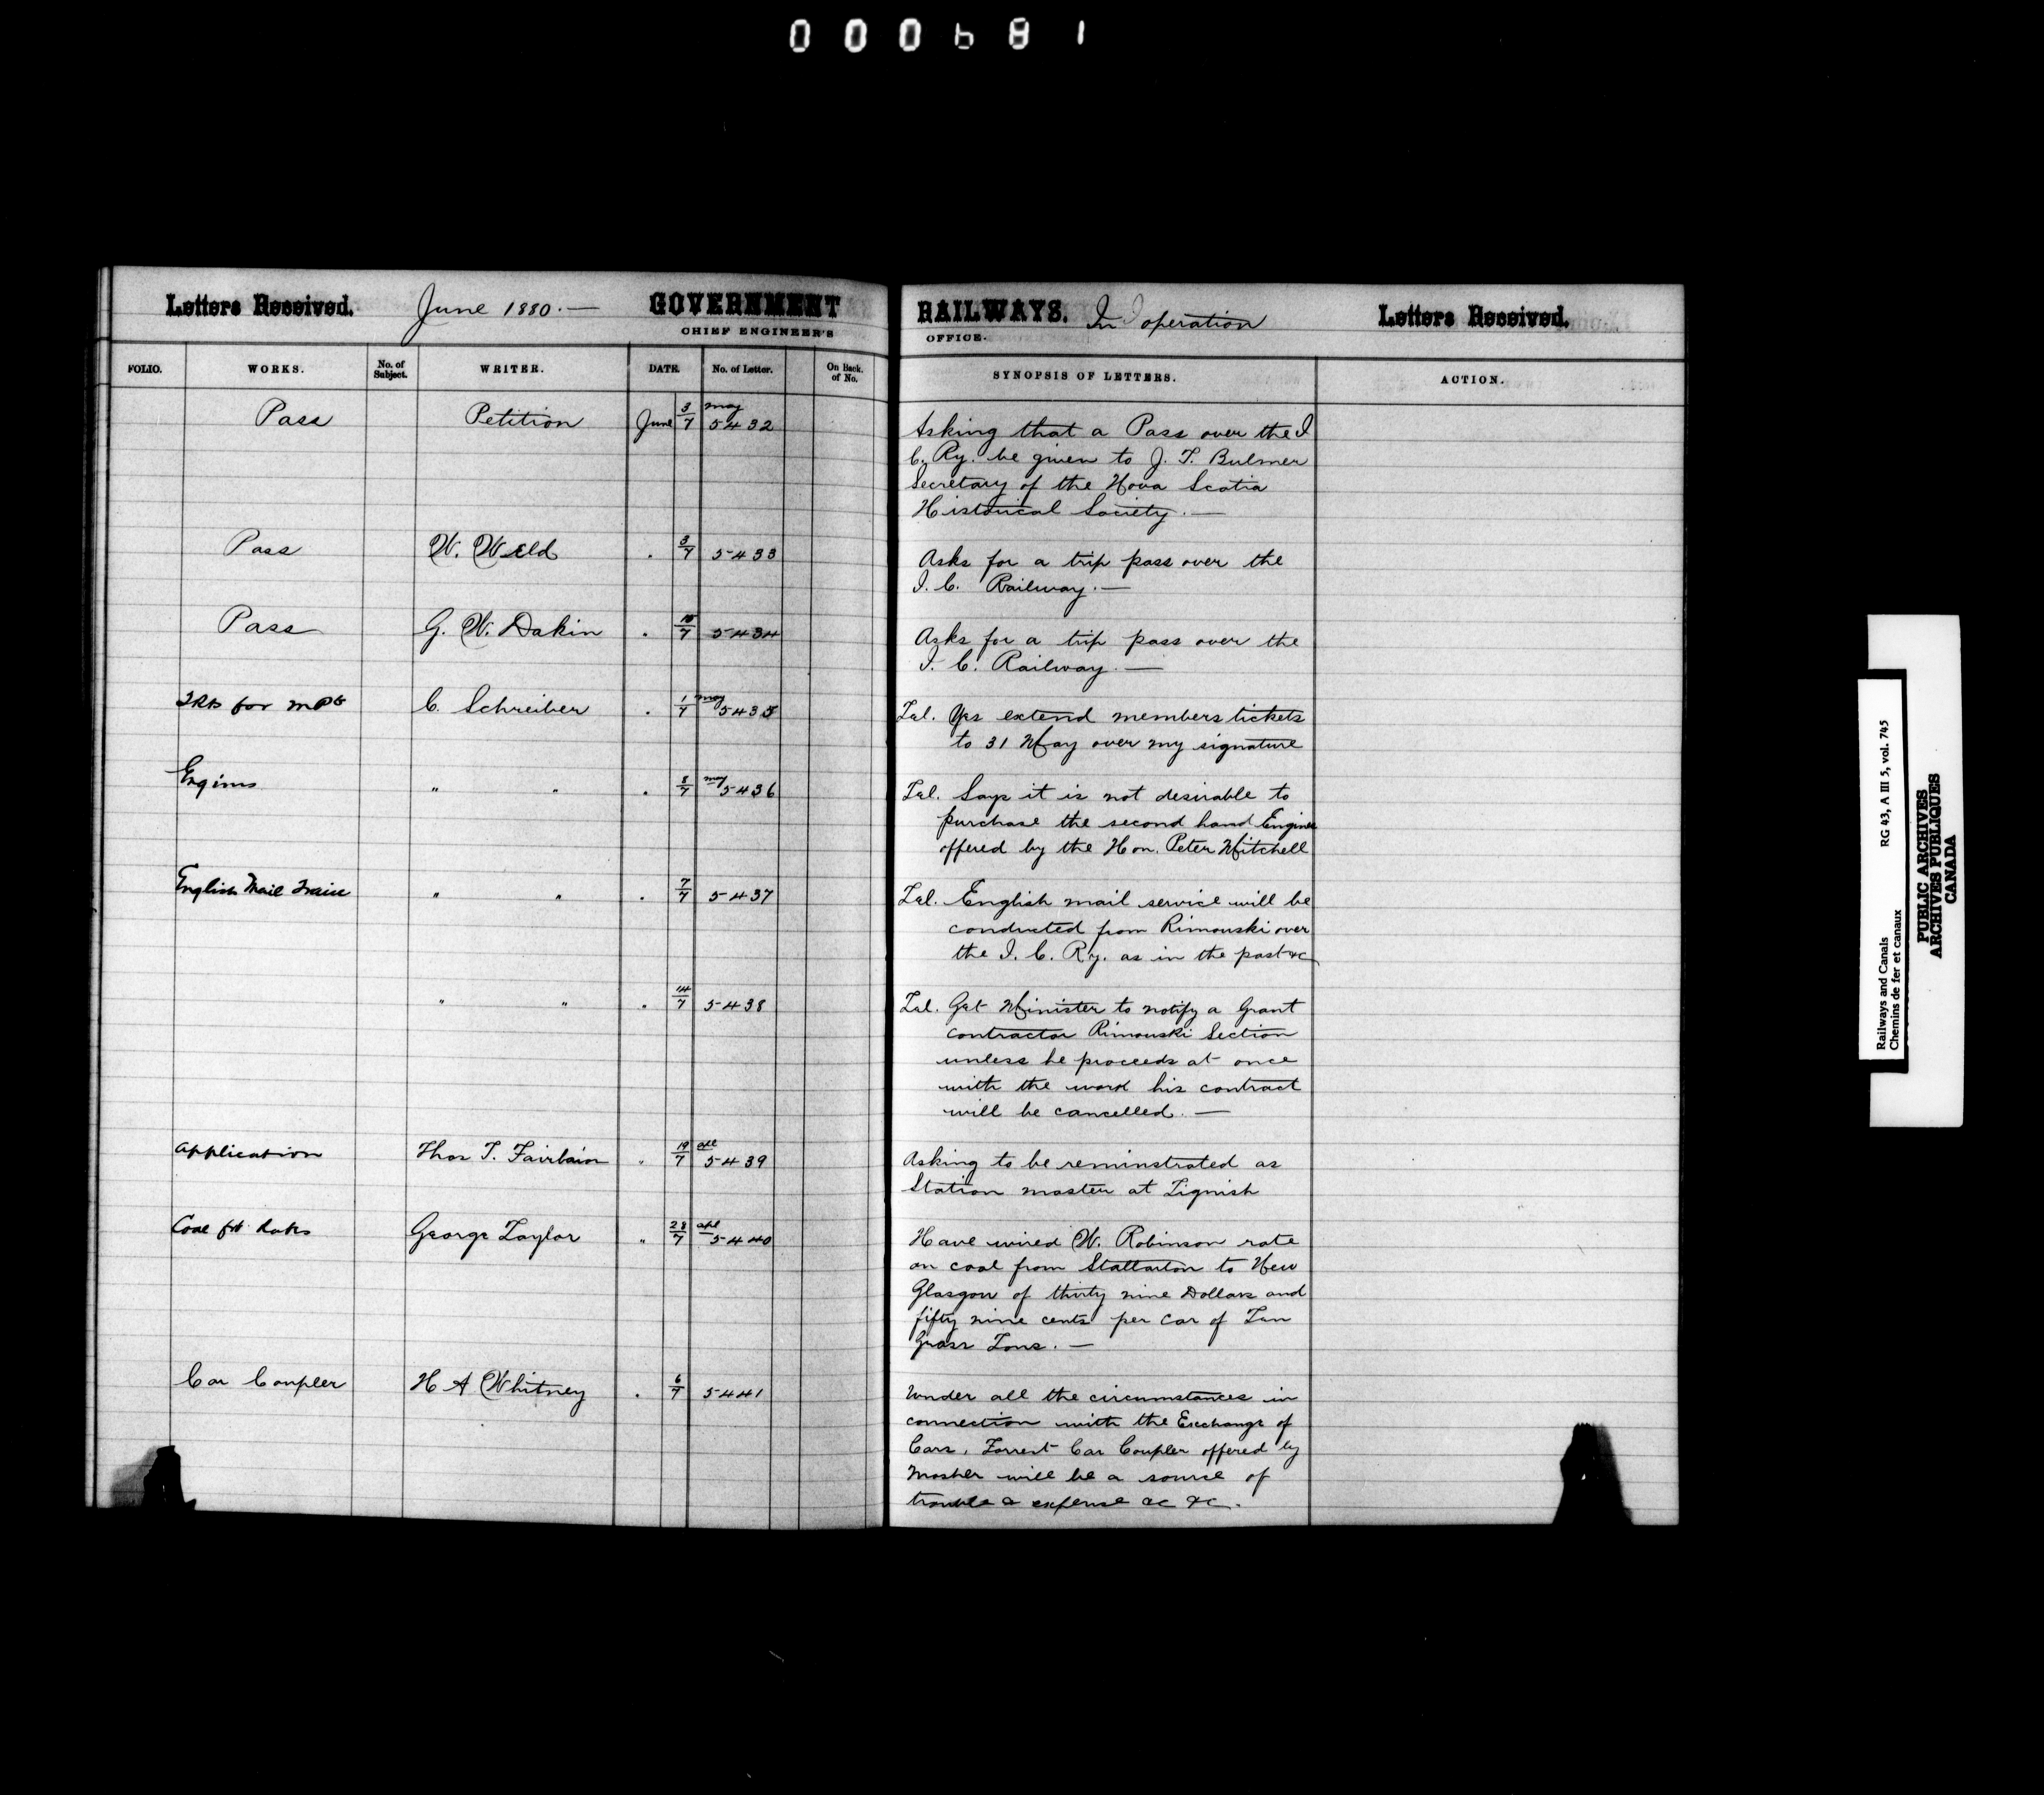 000681
Letters Received. June 1880. — GOVERNMENT RAILWAYS. In operation Letters Received.
CHIEF ENGINEER'S OFFICE.
FOLIO. WORKS. No. of Subject. WRITER. DATE. No. of Letter. On Back. of No. SYNOPSIS OF LETTERS. ACTION.
Pass Petition June 3/7 May 5432 Asking that a Pass over the I
C. Ry. be given to J. T. Bulmer
Secretary of the Nova Scotia
Historical Society. —
Pass W. Weld . 3/7 5433 Asks for a trip pass over the
I. C. Railway. —
Pass G. W. Dakin . 10/7 5434 Asks for a trip pass over the
I. C. Railway. —
for C. Schreiber . 1/7 May 5435 Tel. Yes extend members tickets
to 31 May over my signature
Engines " " . 8/7 May 5436 Tel. Says it is not desirable to
purchase the second hand Engines
offered by the Hon. Peter Mitchell
English Mail Train " " . 7/7 5437 Tel. English mail service will be
conducted from Rimouski over
the I. C. Ry. as in the past &c
" " . 14/7 5438 Tel. Get Minister to notify a Grant
contractor Rimouski Section
unless he proceeds at once
with the work his contract
will be cancelled. —
Application Thos T. Fairbain " 19/7 apl 5439 Asking to be reminstrated as
Station master at Tignish
Coal frt. Rates George Taylor " 28/7 apl 5440 Have wired W. Robinson rate
on coal from Stallarton to New
Glasgow of thirty nine Dollars and
fifty nine cents per car of Ten
Gross Tons. —
Car Coupler H A Whitney . 6/7 5441 Under all the circumstances in
connection with the Exchange of
Cars, Forrest Car Coupler offered by
Mosher will be a source of
trouble & expense &c &c.
Railways and Canals RG 43, A III 5, vol. 745
Chemins de fer et canaux
PUBLIC ARCHIVES
ARCHIVES PUBLIQUES
CANADA